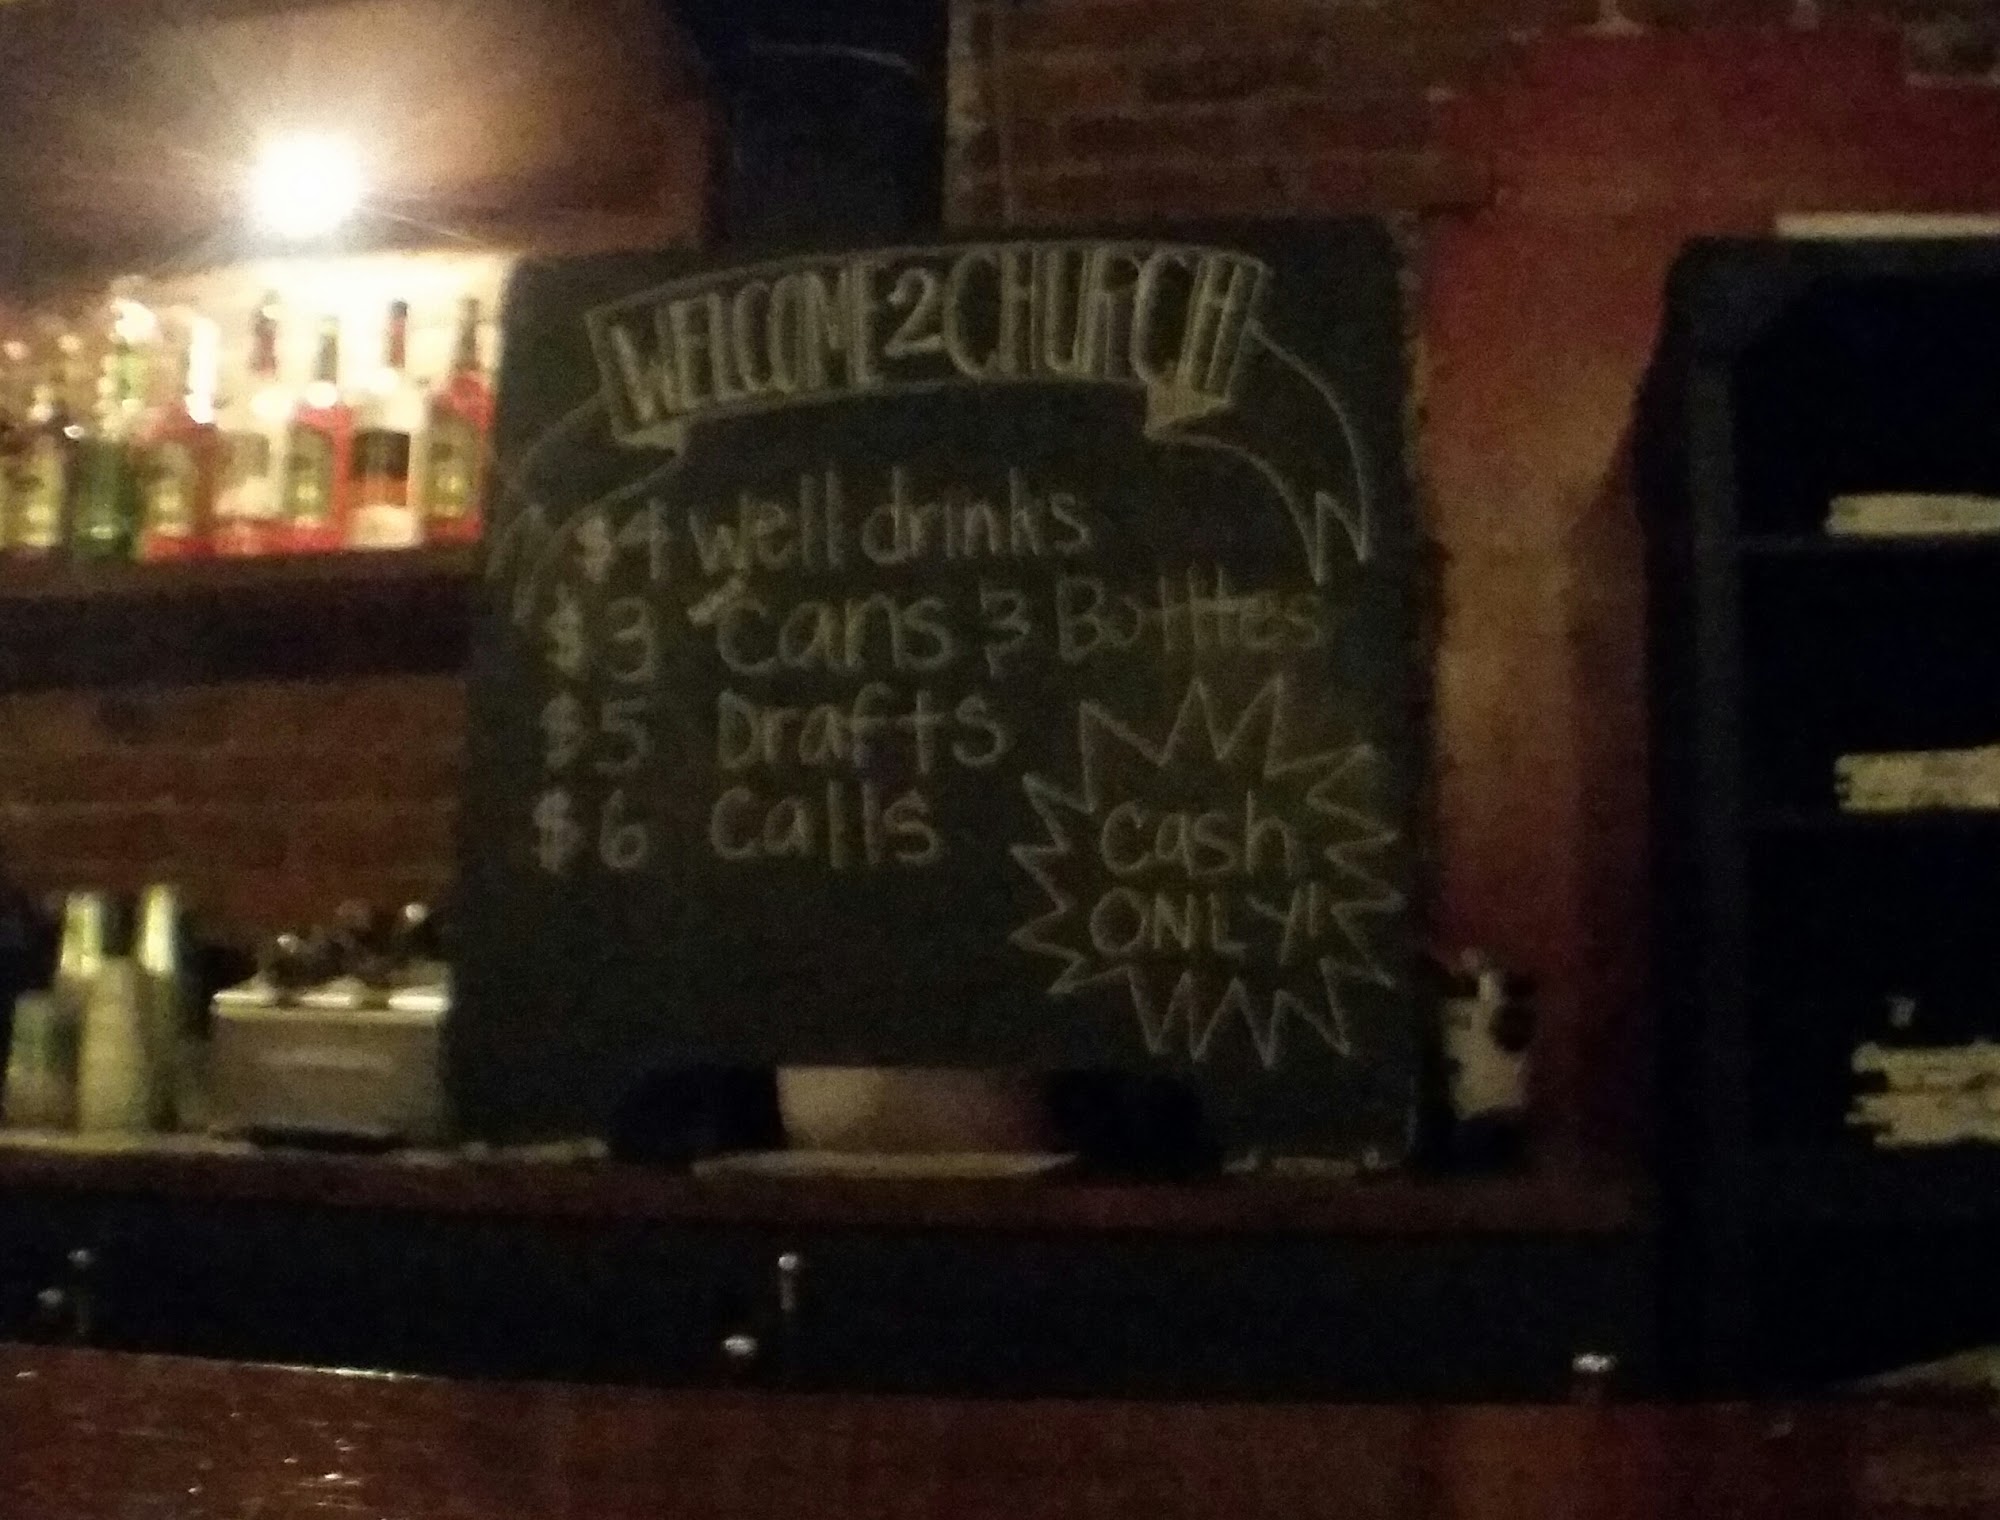 WELCOME 2 CHURCH
$4 well drinks
$3 Cans & Bottles
$5 Drafts
$6 Calls
Cash
ONLY!